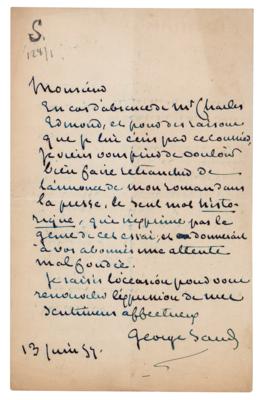 S.
124/1
Monsieur
En cas d'absence de Mr Charles
Edmond, et pour des raisons
que je lui écris par ce courrier,
Je viens vous prier de vouloir
bien faire retrancher de
l'annonce de mon roman dans
la presse, le seul mot histo-
rique, qui n'exprime pas le
genre de cet essai, et donnerait
à vos abonnés une attente
mal fondée.
Je saisis l'occasion pour vous
renouveler l'expression de mes
sentimens affectueux
George Sand
13 juin 57.